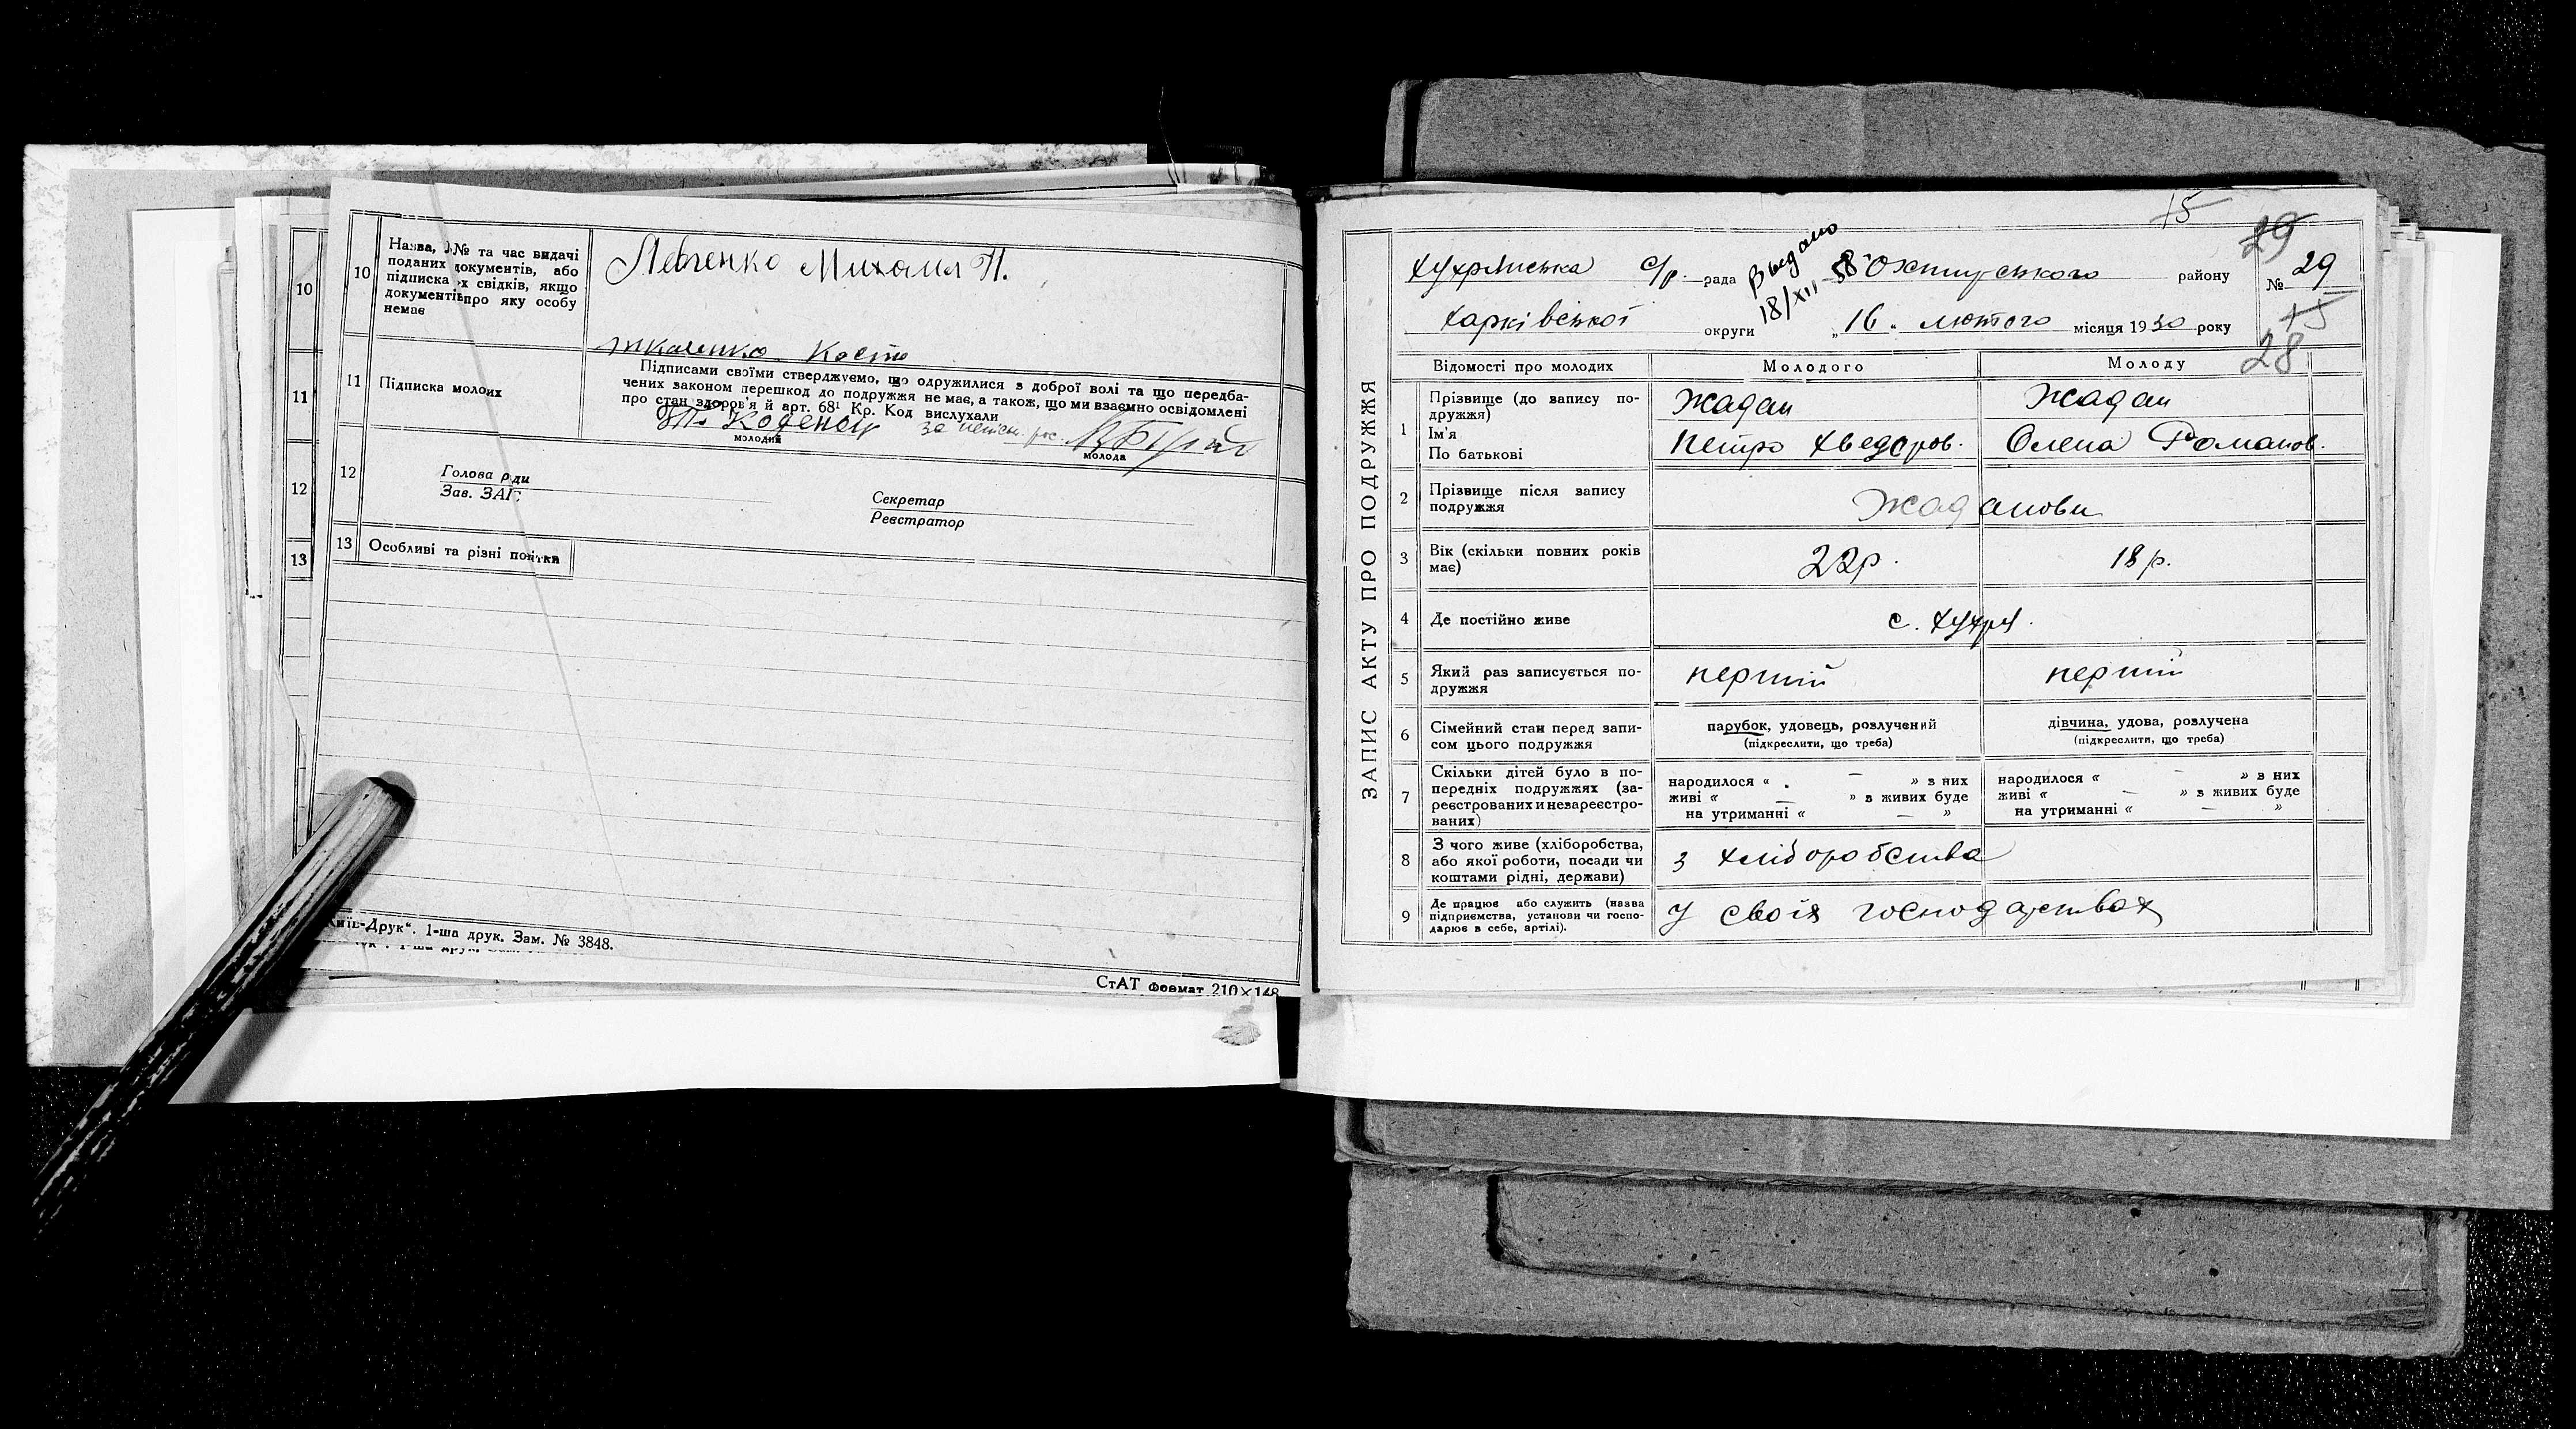 10
11
12
13
10
Назва, № та час видачі
поданих документів, або
підписка їх свідків, якщо
документів про яку особу
немає
Левченко Михаил П.
Ткаченко Костя
11
Підписка молоих
Підписами своїми стверджуємо, що одружилися з доброї волі та що передба-
чених законом перешкод до подружжя не має, а також, що ми взаємно освідомлені
про стан здоров'я й арт. 68¹ Кр. Код вислухали
за
молодий
молода
12
Голова ради
Зав. ЗАГС
Секретар
Реєстратор
13
Особливі та різні помітки
Київ-Друк". 1-ша друк. Зам. № 3848.
СтАТ формат 210×148
ЗАПИС АКТУ ПРО ПОДРУЖЖЯ
15
29
Хухрянська с/р. рада
Введано
18/XII 58
Охтирського району
№ 29
Харківської округи
„16„ лютого місяця 1930 року
15
28
Відомості про молодих
Молодого
Молоду
1
Прізвище (до запису по-
дружжя)
Жадан
Жадан
Ім'я
По батькові
Петро Хведоров.
Олена Романов.
2
Прізвище після запису
подружжя
Жаданови
3
Вік (скільки повних років
має)
22р.
18 р.
4
Де постійно живе
с. Хухря.
5
Який раз записується по-
дружжя
перший
перший
6
Сімейний стан перед запи-
сом цього подружжя
парубок, удовець, розлучений
(підкреслити, що треба)
дівчина, удова, розлучена
(підкреслити, що треба)
7
Скільки дітей було в по-
передніх подружжях (за-
реєстрованих и незареєстро-
ваних)
народилося « — » з них
живі « — » з живих буде
на утриманні « — »
народилося « — » з них
живі « — » з живих буде
на утриманні « — »
8
З чого живе (хліборобства,
або якої роботи, посади чи
коштами рідні, держави)
з хліборобства
9
Де працює або служить (назва
підприємства, установи чи госпо-
дарює в себе, артілі).
У своїх господарствах